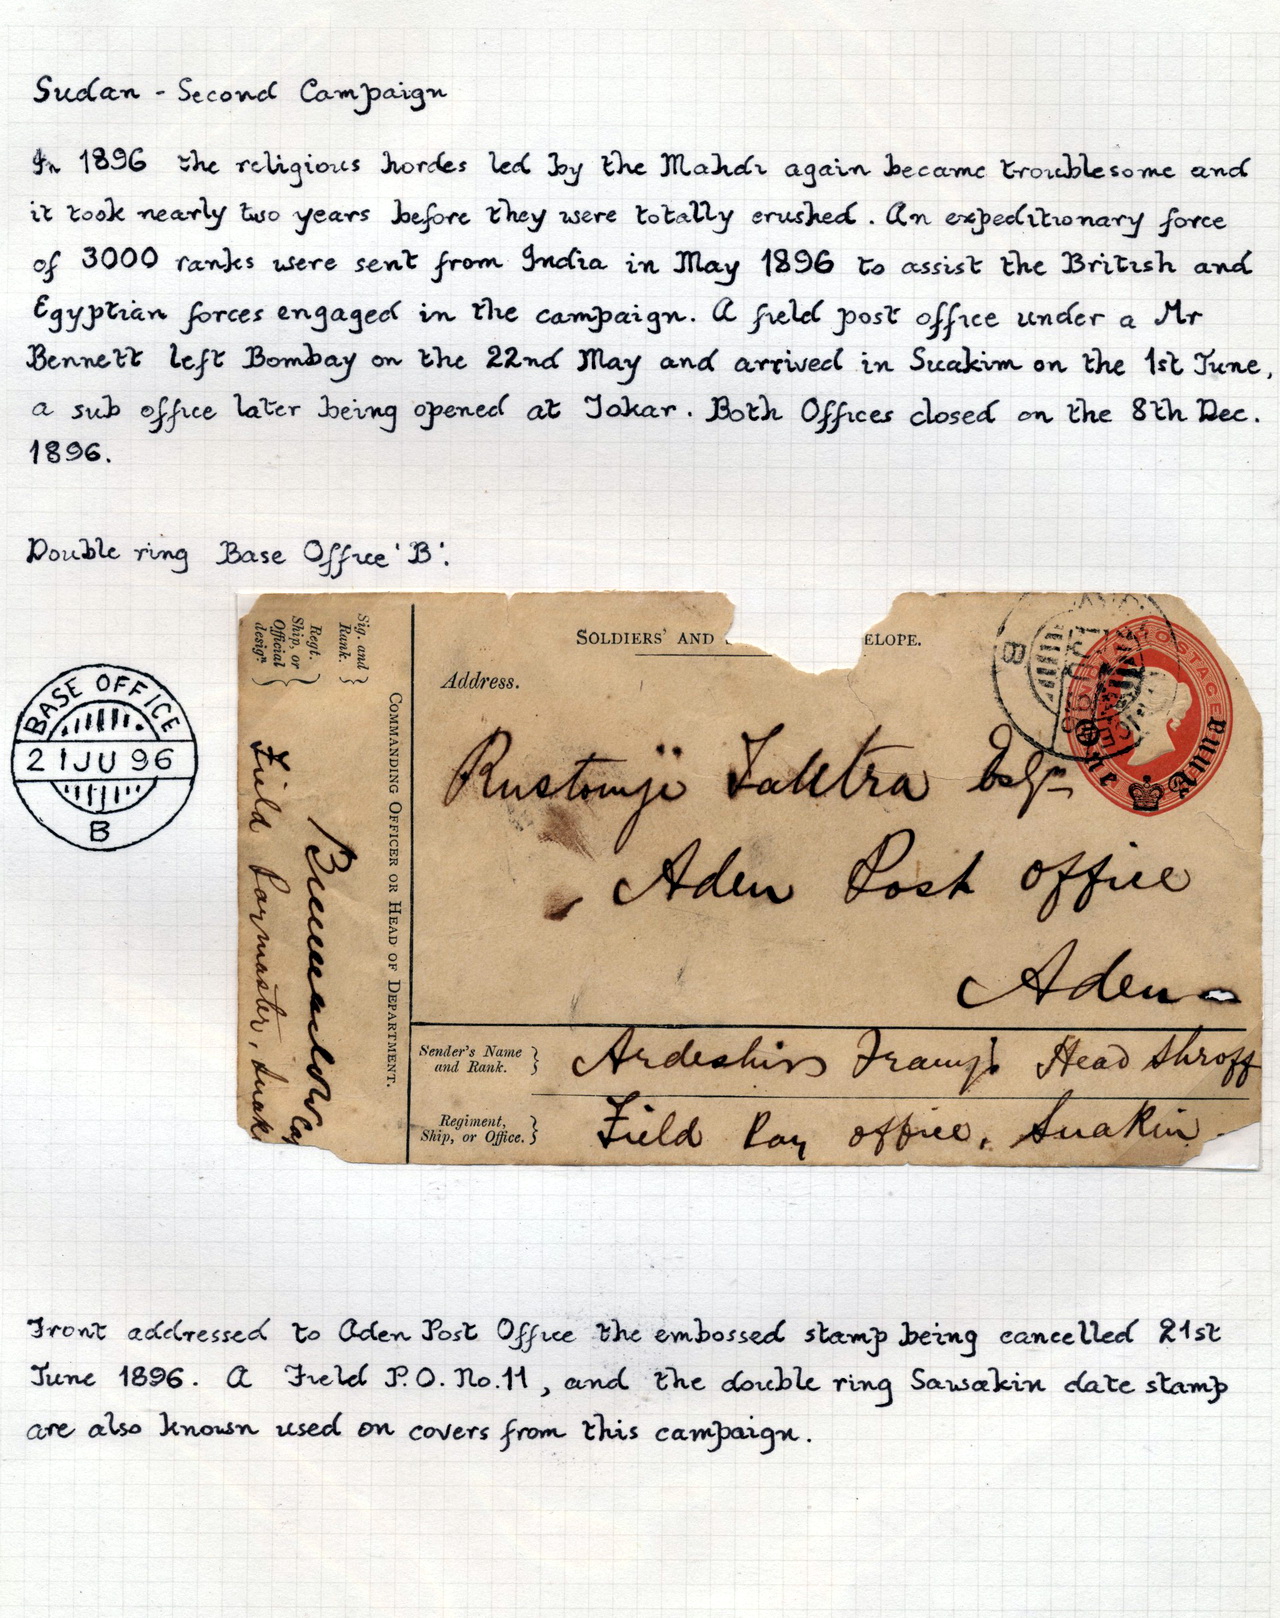 Sudan - Second Campaign
In 1896 the religious hordes led by the Mahdi again became troublesome and
it took nearly two years before they were totally crushed. An expeditionary force
of 3000 ranks were sent from India in May 1896 to assist the British and
Egyptian forces engaged in the campaign. A field post office under a Mr
Bennett left Bombay on the 22nd May and arrived in Suakim on the 1st June,
a sub office later being opened at Tokar. Both Offices closed on the 8th Dec.
1896.
Double ring Base Office 'B'.
BASE OFFICE
21 JU 96
B
Sig. and
Rank.
Regt.
Ship, or
Official
design.
Field Paymaster, Suak
COMMANDING OFFICER OR HEAD OF DEPARTMENT.
SOLDIERS' AND ELOPE.
Address.
B
One Anna
Rustomji Esqr
Aden Post Office
Aden
Sender's Name
and Rank.
Ardeshir Framji Head Shroff
Regiment,
Ship, or Office.
Field Pay office, Suakin.
Front addressed to Aden Post Office the embossed stamp being cancelled 21st
June 1896. A Field P.O. No. 11, and the double ring Sawakin date stamp
are also known used on covers from this campaign.